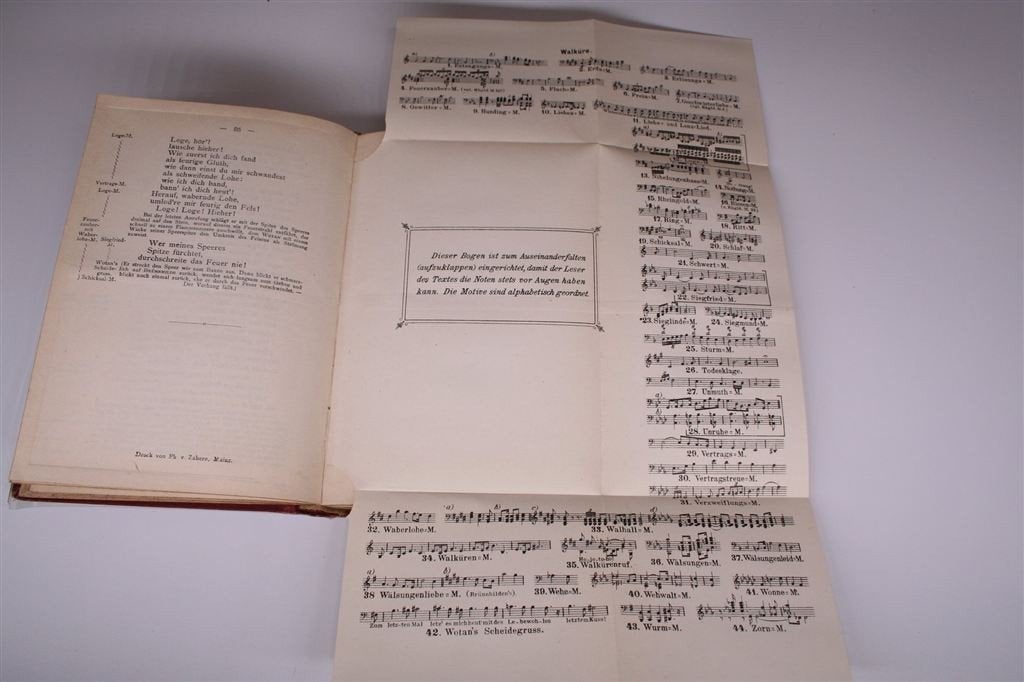 — 86 —
Loge-M.
Loge, hör'!
lausche hieher!
Wie zuerst ich dich fand
als feurige Gluth,
wie dann einst du mir schwandest
als schweifende Lohe:
wie ich dich band,
Vertrags-M.
bann' ich dich heut'!
Loge-M.
Herauf, wabernde Lohe,
umlod're mir feurig den Fels!
Loge! Loge! Hieher!
Feuer-
zauber-
mit
Waber-
lohe-M.
Bei der letzten Anrufung schlägt er mit der Spitze des Speeres
dreimal auf den Stein, worauf diesem ein Feuerstrahl entfährt, der
schnell zu einem Flammenmeere anschwillt, dem Wotan mit einem
Winke seiner Speerspitze den Umkreis des Felsens als Strömung
zuweist
Siegfried-
M.
Wer meines Speeres
Spitze fürchtet,
durchschreite das Feuer nie!
Wotan's
Scheide-
gruss.
Schicksal-M.
(Er streckt den Speer wie zum Banne aus. Dann blickt er schmerz-
lich auf Brünnhilde zurück, wendet sich langsam zum Gehen und
blickt noch einmal zurück, ehe er durch das Feuer verschwindet. —
Der Vorhang fällt.)
Druck von Ph. v. Zabern, Mainz.
Walküre.
a) b)
1. Entsagungs=M.
2. Erda=M.
3. Entsangs=M.
4. Feuerzauber=M.
5. Fluch=M.
6. Freia=M.
7. Geschwisterliebe=M.
8. Gewitter=M.
9. Hunding=M.
10. Liebes=M.
11. Liebe= und Lenz=Lied.
13. Nibelungenhass=M.
14. Nothung=M.
15. Rheingold=M.
16. Riesen=M.
17. Ring=M.
18. Ritt=M.
19. Schicksal=M.
20. Schlaf=M.
21. Schwert=M.
22. Siegfried=M.
23. Sieglinde=M.
24. Siegmund=M.
25. Sturm=M.
26. Todesklage.
27. Unmuth=M.
a)
b)
28. Unruhe=M.
29. Vertrags=M.
30. Vertragstreue=M.
31. Verzweiflungs=M.
Dieser Bogen ist zum Auseinanderfalten
(aufzuklappen) eingerichtet, damit der Leser
des Textes die Noten stets vor Augen haben
kann. Die Motive sind alphabetisch geordnet.
a) b) c) d)
32. Waberlohe=M.
33. Walhall=M.
34. Walküren=M.
Ho-jo-to-ho!
35. Walkürenruf.
36. Wälsungen=M.
37. Wälsungenleid=M.
a) b)
38 Wälsungenliebe=M. (Brünnhilden's).
39. Wehe=M.
40. Wehwalt=M.
41. Wonne=M.
Zum letz-ten Mal letz' es mich heut mit des Le-be-woh-les letztem Kuss!
42. Wotan's Scheidegruss.
43. Wurm=M.
44. Zorn=M.